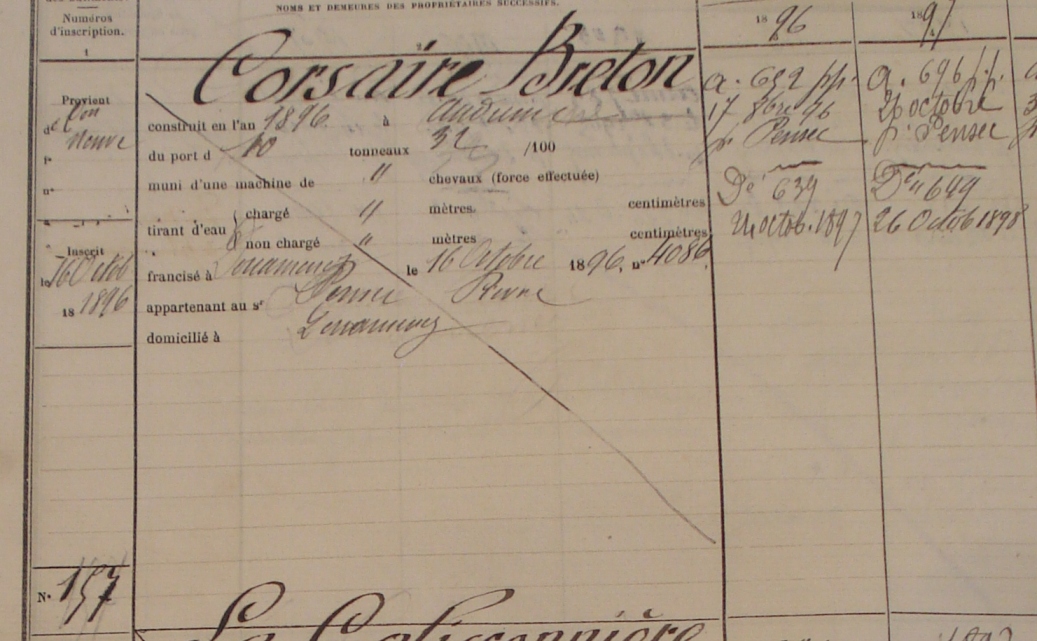 NOMS ET DEMEURES DES PROPRIÉTAIRES SUCCESSIFS.
Numéros
d'inscription.
1
1896
1897
Corsaire Breton
Provient
de Con
Neuve
le
n°
construit en l'an 1896 à Audierne
du port d 10 tonneaux 32 /100
muni d'une machine de " chevaux (force effectuée)
tirant d'eau
chargé " mètres. centimètres
non chargé " mètres centimètres
francisé à Douarnenez le 16 Octobre 1896, n° 4086
appartenant au sr
domicilié à Douarnenez
Inscrit
le 16 Octob
18 1896
a. 692 pp.
17 8bre 96
p. Pensec
De 639
21 octob. 1897
a. 696 p.p.
26 octobre
p. Pensec
649
26 Octob 1898
N° 157
La